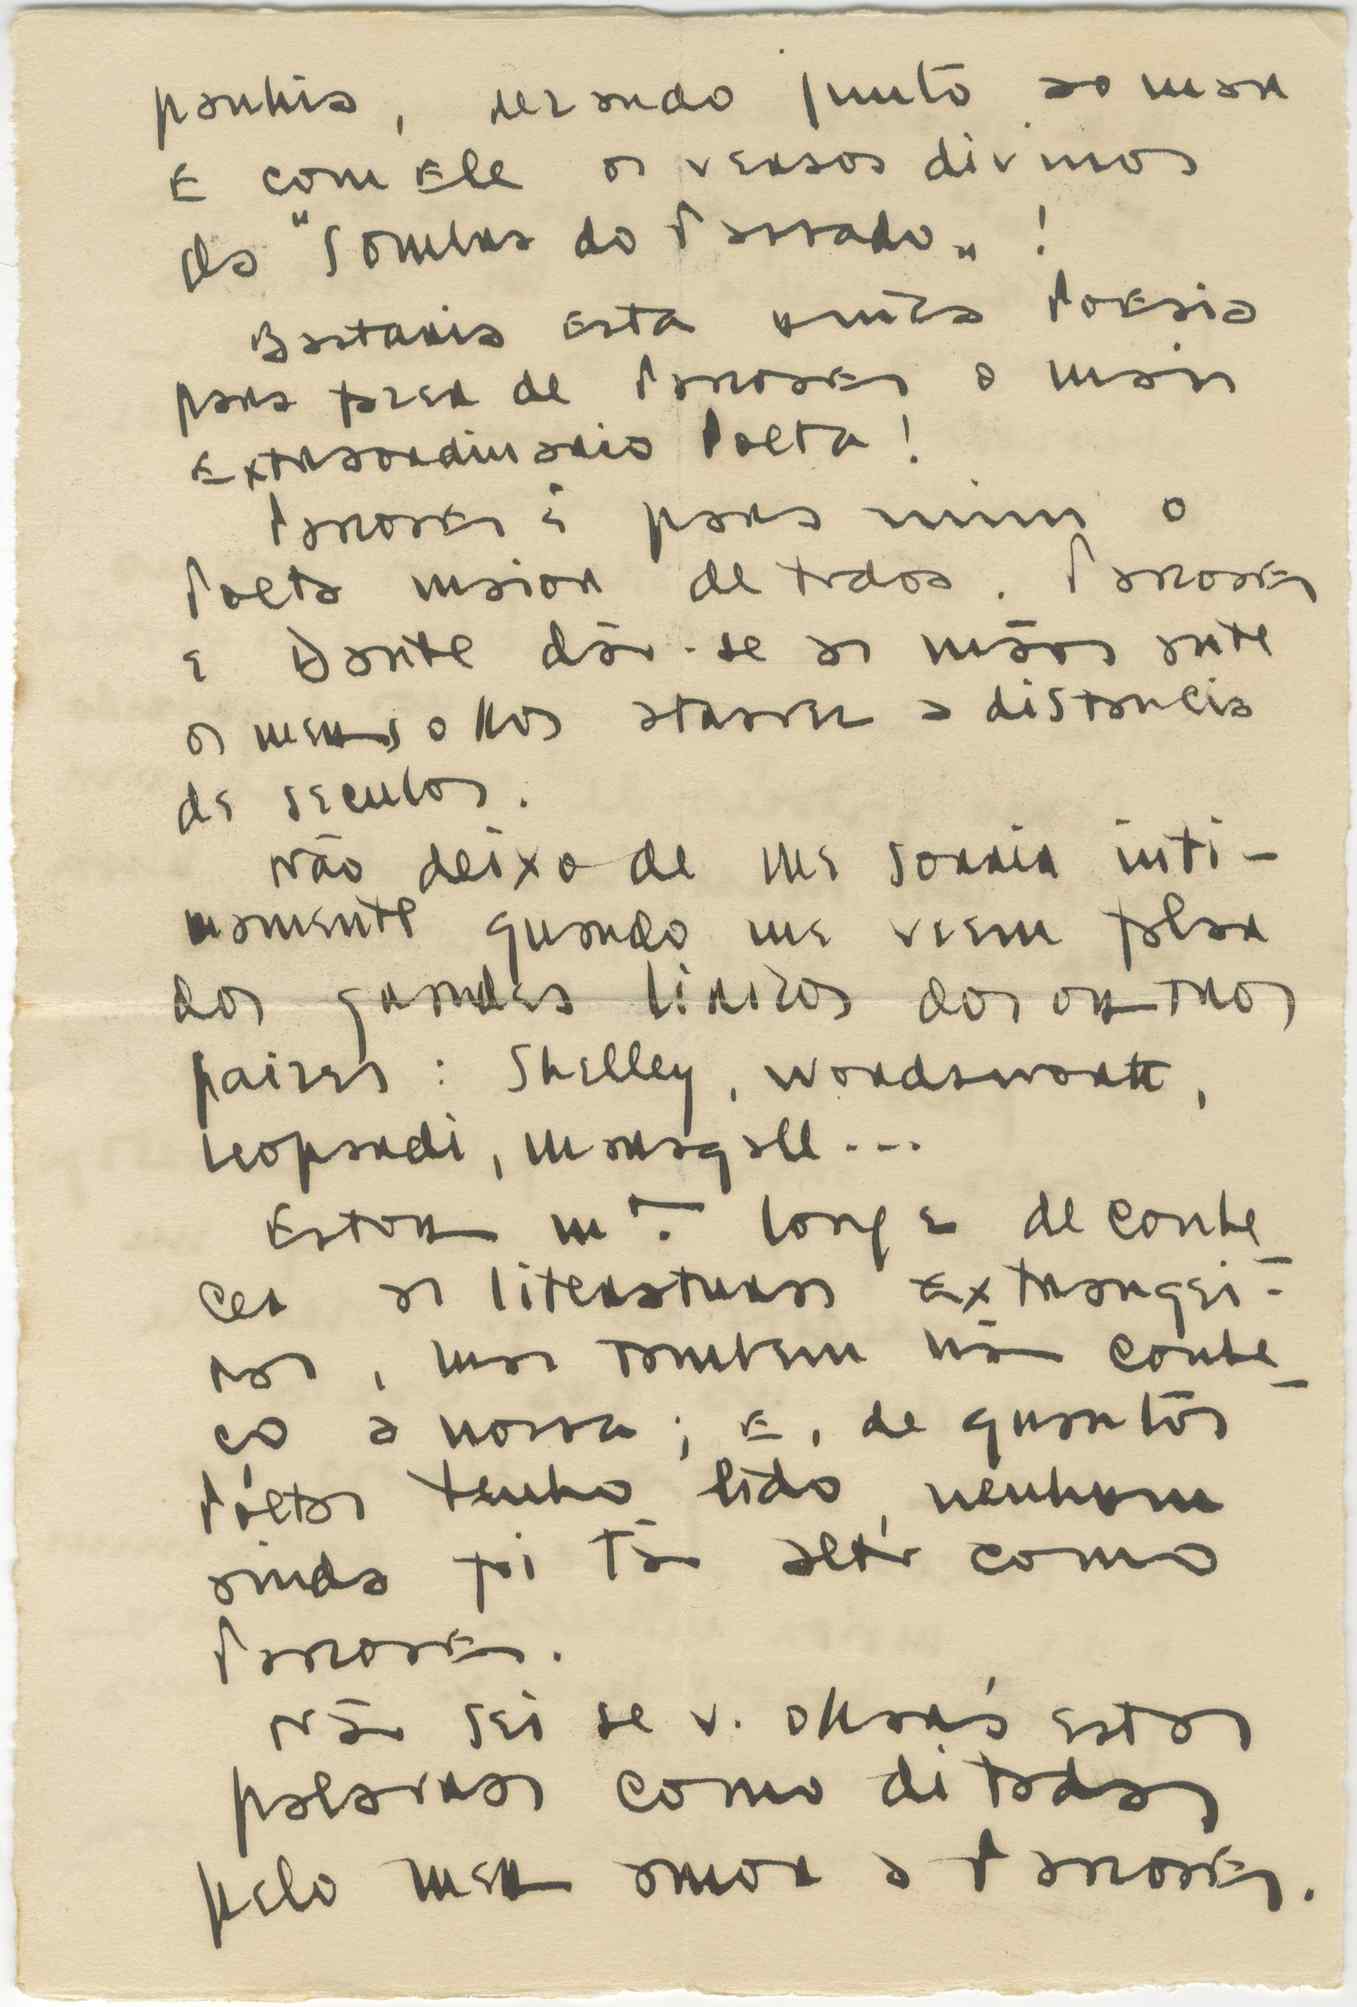 panhia, rezando junto ao mar
E com Ele os versos divinos
da "Sombra do Passado" !
Bastaria esta unica Poesia
para fazer de Pascoaes o mais
Extraordinario Poeta !
Pascoaes é para mim o
Poeta maior de todos. Pascoaes
e Dante dão-se as mãos ante
os meus olhos atravez a distancia
de seculos.
Não deixo de me sorrir inti-
mamente quando me veem falar
dos grandes liricos dos outros
paizes : Shelley, Wordsworth,
Leopardi, Maragall ...
Estou mto. longe de conhe_
cer as literaturas Extrangei-
ras, mas tambem não conhe_
ço a nossa ; E, de quantos
Poetas tenho lido, nenhum
ainda foi tão alto como
Pascoaes.
Não sei se v. olhará estas
palavras como ditadas
pelo meu amor a Pascoaes.